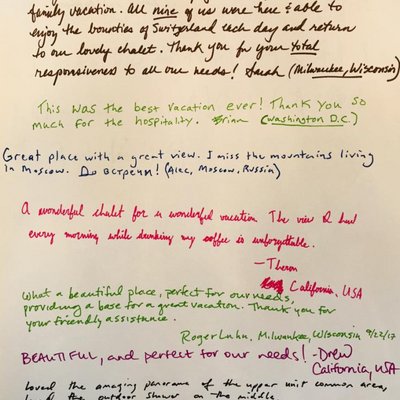 family vacation. All nine of us were here & able to
enjoy the bounties of Switzerland each day and return
to our lovely chalet. Thank you for your total
responsiveness to all our needs! Sarah (Milwaukee, Wisconsin)
This was the best vacation ever! Thank you so
much for the hospitality. Brian (Washington D.C.)
Great place with a great view. I miss the mountains living
in Moscow. До встречи! (Alec, Moscow, Russia)
A wonderful chalet for a wonderful vacation. The view I had
every morning while drinking my coffee is unforgettable.
- Theron
California, USA
What a beautiful place, perfect for our needs,
providing a base for a great vacation. Thank you for
your friendly assistance.
Roger Luhn, Milwaukee, Wisconsin 9/22/17
BEAUTIFUL, and perfect for our needs! -Drew
California, USA
Loved the amazing panorama of the upper unit common area,
the outdoor shower on the middle